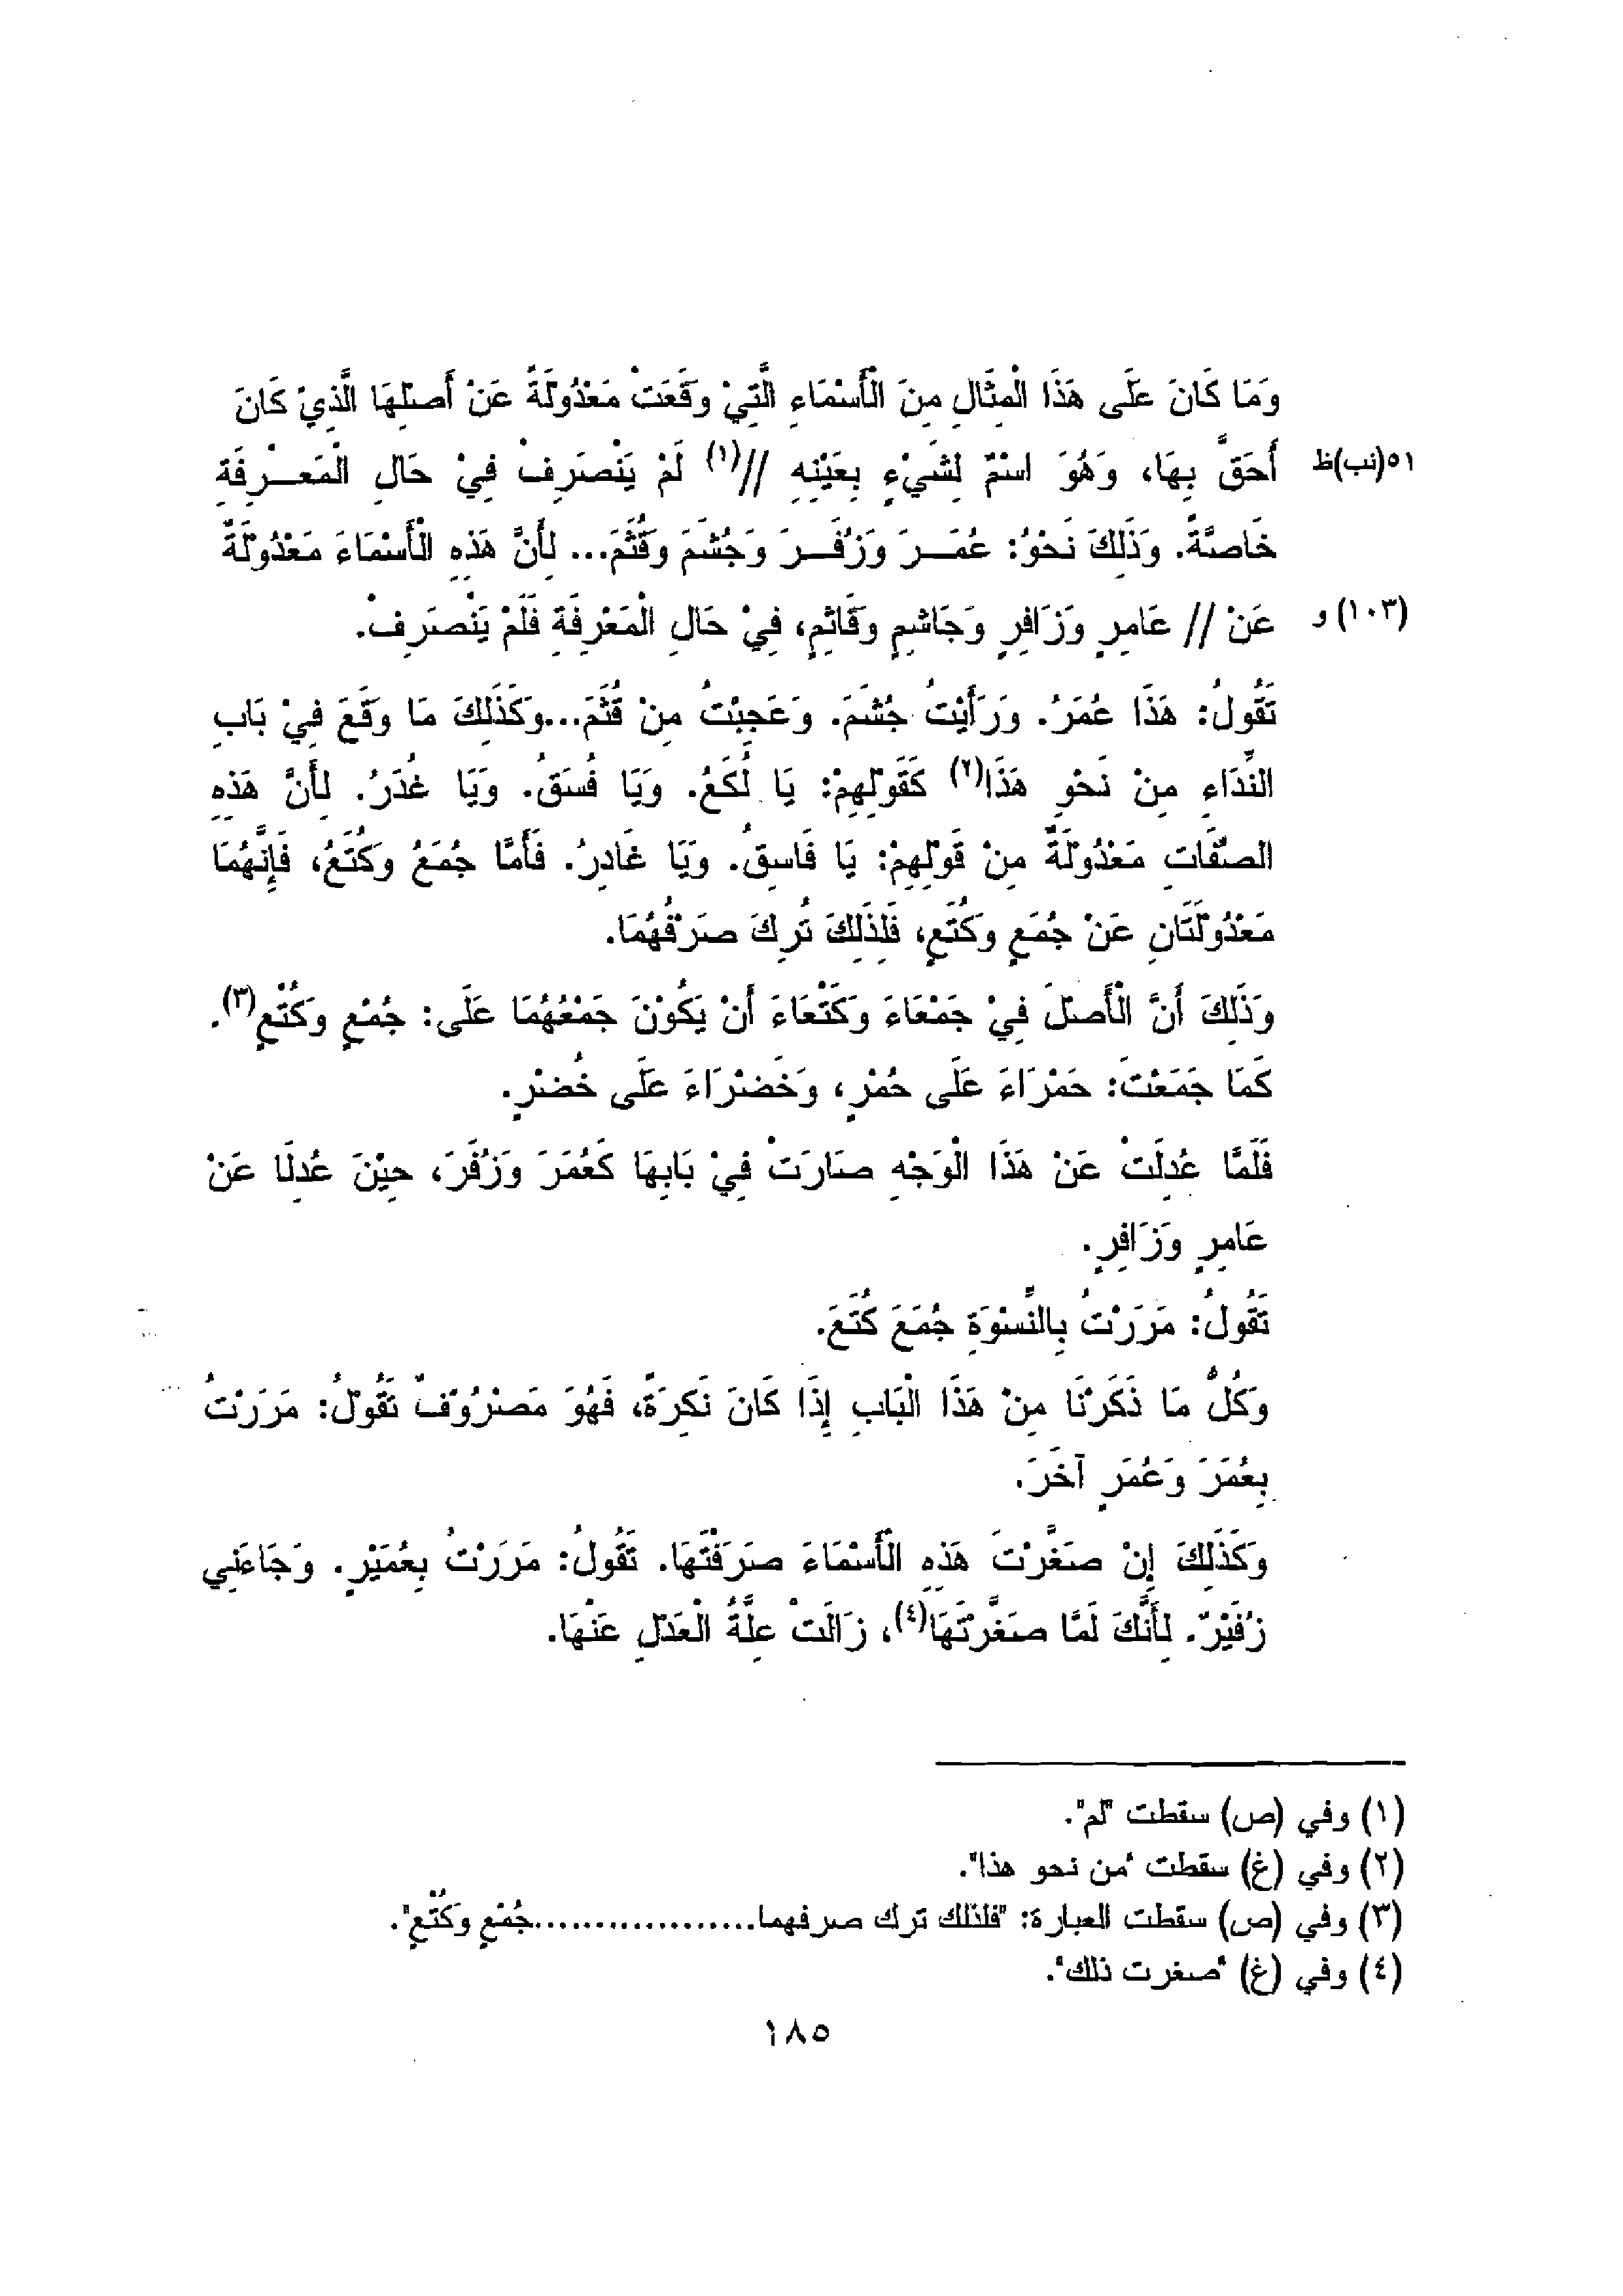 وَمَا كَانَ عَلَى هَذَا الْمِثَالِ مِنَ الْأَسْمَاءِ الَّتِيْ وَقَعَتْ مَعْدُولَةً عَنْ أَصْلِهَا الَّذِيْ كَانَ
٥١(نب)ظ أَحَقَّ بِهَا، وَهُوَ اسْمٌ لِشَيْءٍ بِعَيْنِهِ //(١) لَمْ يَنْصَرِفْ فِيْ حَالِ الْمَعْـرِفَةِ
خَاصَّةً. وَذَلِكَ نَحْوُ: عُمَـرَ وَزُفَـرَ وَجُشَمَ وَقُثَمَ... لِأَنَّ هَذِهِ الْأَسْمَاءَ مَعْدُولَةٌ
(١٠٣) و عَنْ // عَامِرٍ وَزَافِرٍ وَجَاشِمٍ وَقَاثِمٍ، فِيْ حَالِ الْمَعْرِفَةِ فَلَمْ يَنْصَرِفْ.
تَقُولُ: هَذَا عُمَرُ. وَرَأَيْتُ جُشَمَ. وَعَجِبْتُ مِنْ قُثَمَ...وَكَذَلِكَ مَا وَقَعَ فِيْ بَابِ
النِّدَاءِ مِنْ نَحْوِ هَذَا(٢) كَقَوْلِهِمْ: يَا لُكَعُ. وَيَا فُسَقُ. وَيَا غُدَرُ. لِأَنَّ هَذِهِ
الصِّفَاتِ مَعْدُولَةٌ مِنْ قَوْلِهِمْ: يَا فَاسِقُ. وَيَا غَادِرُ. فَأَمَّا جُمَعُ وَكُتَعُ، فَإِنَّهُمَا
مَعْدُولَتَانِ عَنْ جُمَعٍ وَكُتَعٍ، فَلِذَلِكَ تُرِكَ صَرْفُهُمَا.
وَذَلِكَ أَنَّ الْأَصْلَ فِيْ جَمْعَاءَ وَكَتْعَاءَ أَنْ يَكُوْنَ جَمْعُهُمَا عَلَى: جُمْعٍ وَكُتْعٍ(٣).
كَمَا جَمَعْتَ: حَمْرَاءَ عَلَى حُمْرٍ، وَخَضْرَاءَ عَلَى خُضْرٍ.
فَلَمَّا عُدِلَتْ عَنْ هَذَا الْوَجْهِ صَارَتْ فِيْ بَابِهَا كَعُمَرَ وَزُفَرَ، حِيْنَ عُدِلَا عَنْ
عَامِرٍ وَزَافِرٍ.
تَقُولُ: مَرَرْتُ بِالنِّسْوَةِ جُمَعَ كُتَعَ.
وَكُلُّ مَا ذَكَرْنَا مِنْ هَذَا الْبَابِ إِذَا كَانَ نَكِرَةً، فَهُوَ مَصْرُوْفٌ تَقُوْلُ: مَرَرْتُ
بِعُمَرَ وَعُمَرٍ آخَرَ.
وَكَذَلِكَ إِنْ صَغَّرْتَ هَذِهِ الْأَسْمَاءَ صَرَفْتَهَا. تَقُولُ: مَرَرْتُ بِعُمَيْرٍ. وَجَاءَنِي
زُفَيْرٌ. لِأَنَّكَ لَمَّا صَغَّرْتَهَا(٤)، زَالَتْ عِلَّةُ الْعَدْلِ عَنْهَا.
(١) وفي (ص) سقطت "لم".
(٢) وفي (غ) سقطت "من نحو هذا".
(٣) وفي (ص) سقطت العبارة: "فلذلك ترك صرفهما..................جُمْعٍ وَكُتْعٍ".
(٤) وفي (غ) "صغرت ذلك".
١٨٥